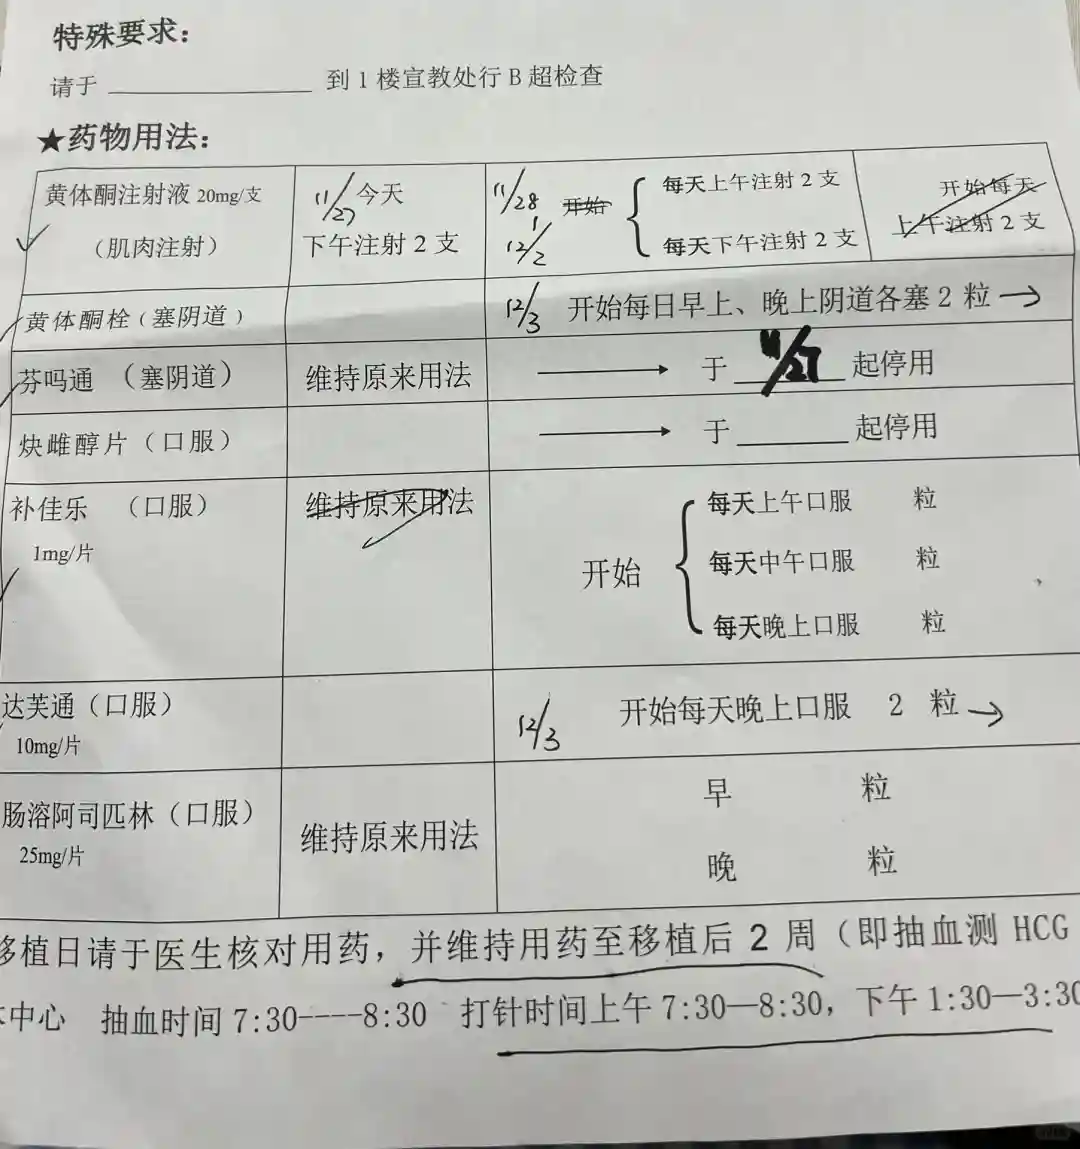 特殊要求：
请于 ____________ 到 1 楼宣教处行 B 超检查
★药物用法：
黄体酮注射液 20mg/支
（肌肉注射）
11/27 今天
下午注射 2 支
11/28 开始
12/2
每天上午注射 2 支
每天下午注射 2 支
开始每天
上午注射 2 支
黄体酮栓（塞阴道）
12/3 开始每日早上、晚上阴道各塞 2 粒 →
芬吗通 （塞阴道）
维持原来用法
→ 于 11/27 起停用
炔雌醇片（口服）
→ 于 ________ 起停用
补佳乐 （口服）
1mg/片
维持原来用法
开始
每天上午口服 粒
每天中午口服 粒
每天晚上口服 粒
达芙通（口服）
10mg/片
12/3 开始每天晚上口服 2 粒 →
肠溶阿司匹林（口服）
25mg/片
维持原来用法
早 粒
晚 粒
移植日请于医生核对用药，并维持用药至移植后 2 周（即抽血测 HCG
中心 抽血时间 7:30----8:30 打针时间上午 7:30—8:30，下午 1:30—3:30